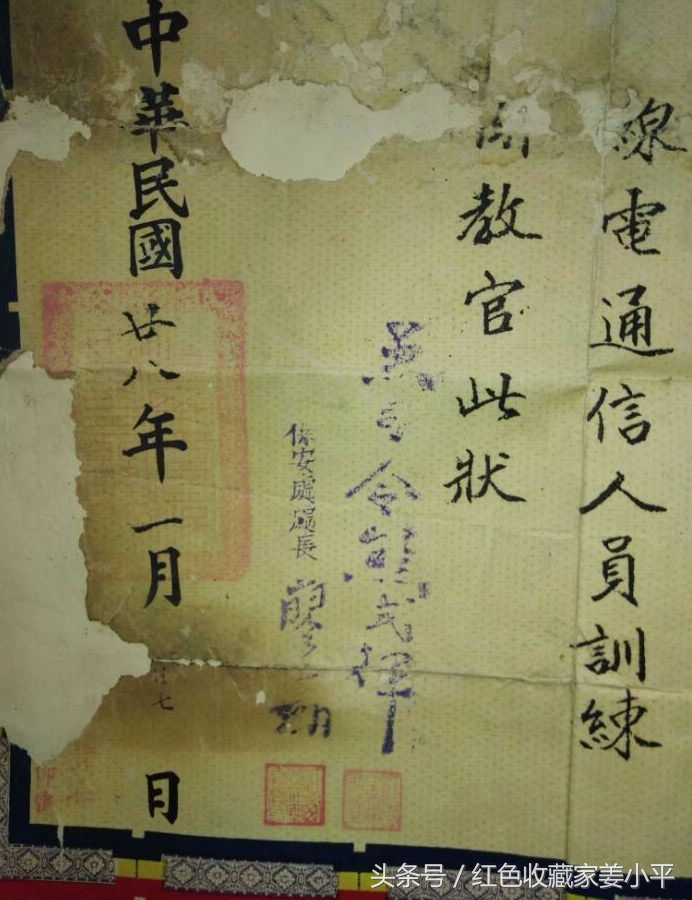 線電通信人員訓練
教官此狀
兼司令熊式輝
保安處處長 廖
中華民國廿八年一月廿七日
头条号／红色收藏家姜小平